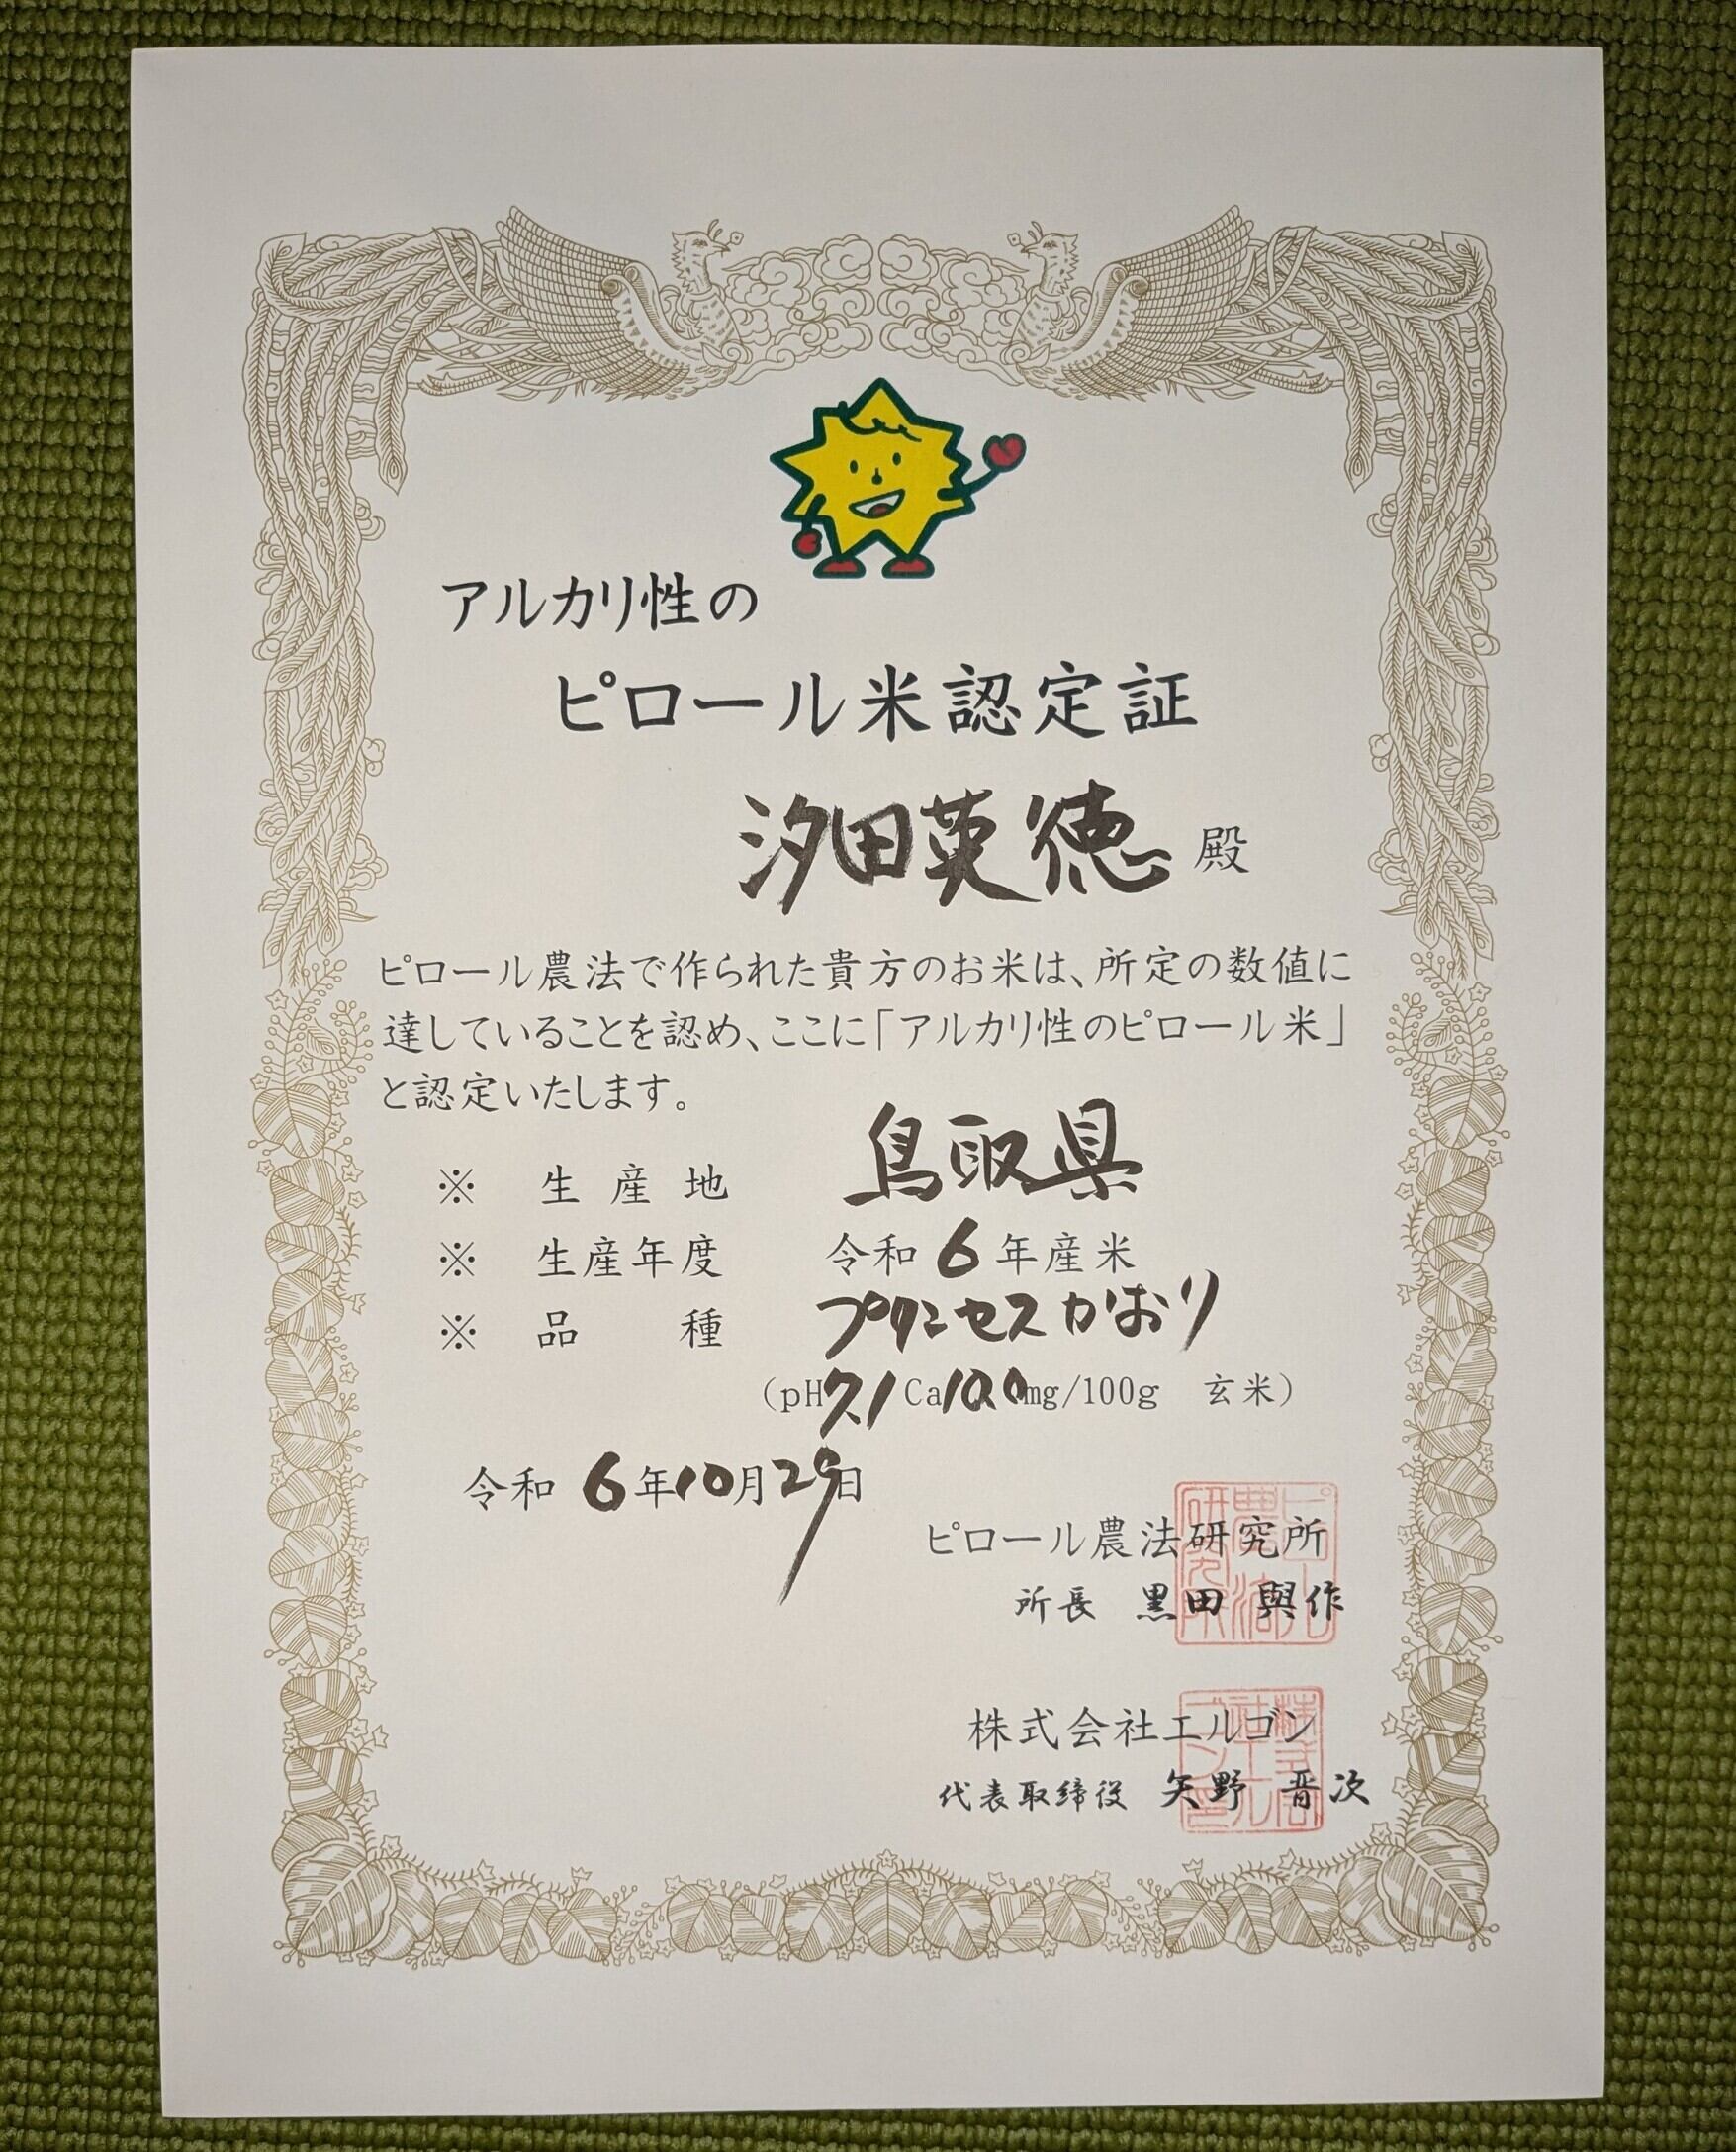 アルカリ性の
ピロール米認定証
汐田英徳 殿
ピロール農法で作られた貴方のお米は、所定の数値に
達していることを認め、ここに「アルカリ性のピロール米」
と認定いたします。
※ 生産地 鳥取県
※ 生産年度 令和6年産米
※ 品種 プリンセスかおり
(pH7.1 Ca10.0mg/100g 玄米)
令和6年10月29日
ピロール農法研究所
所長 黒田 與作
株式会社エルゴン
代表取締役 矢野 晋次